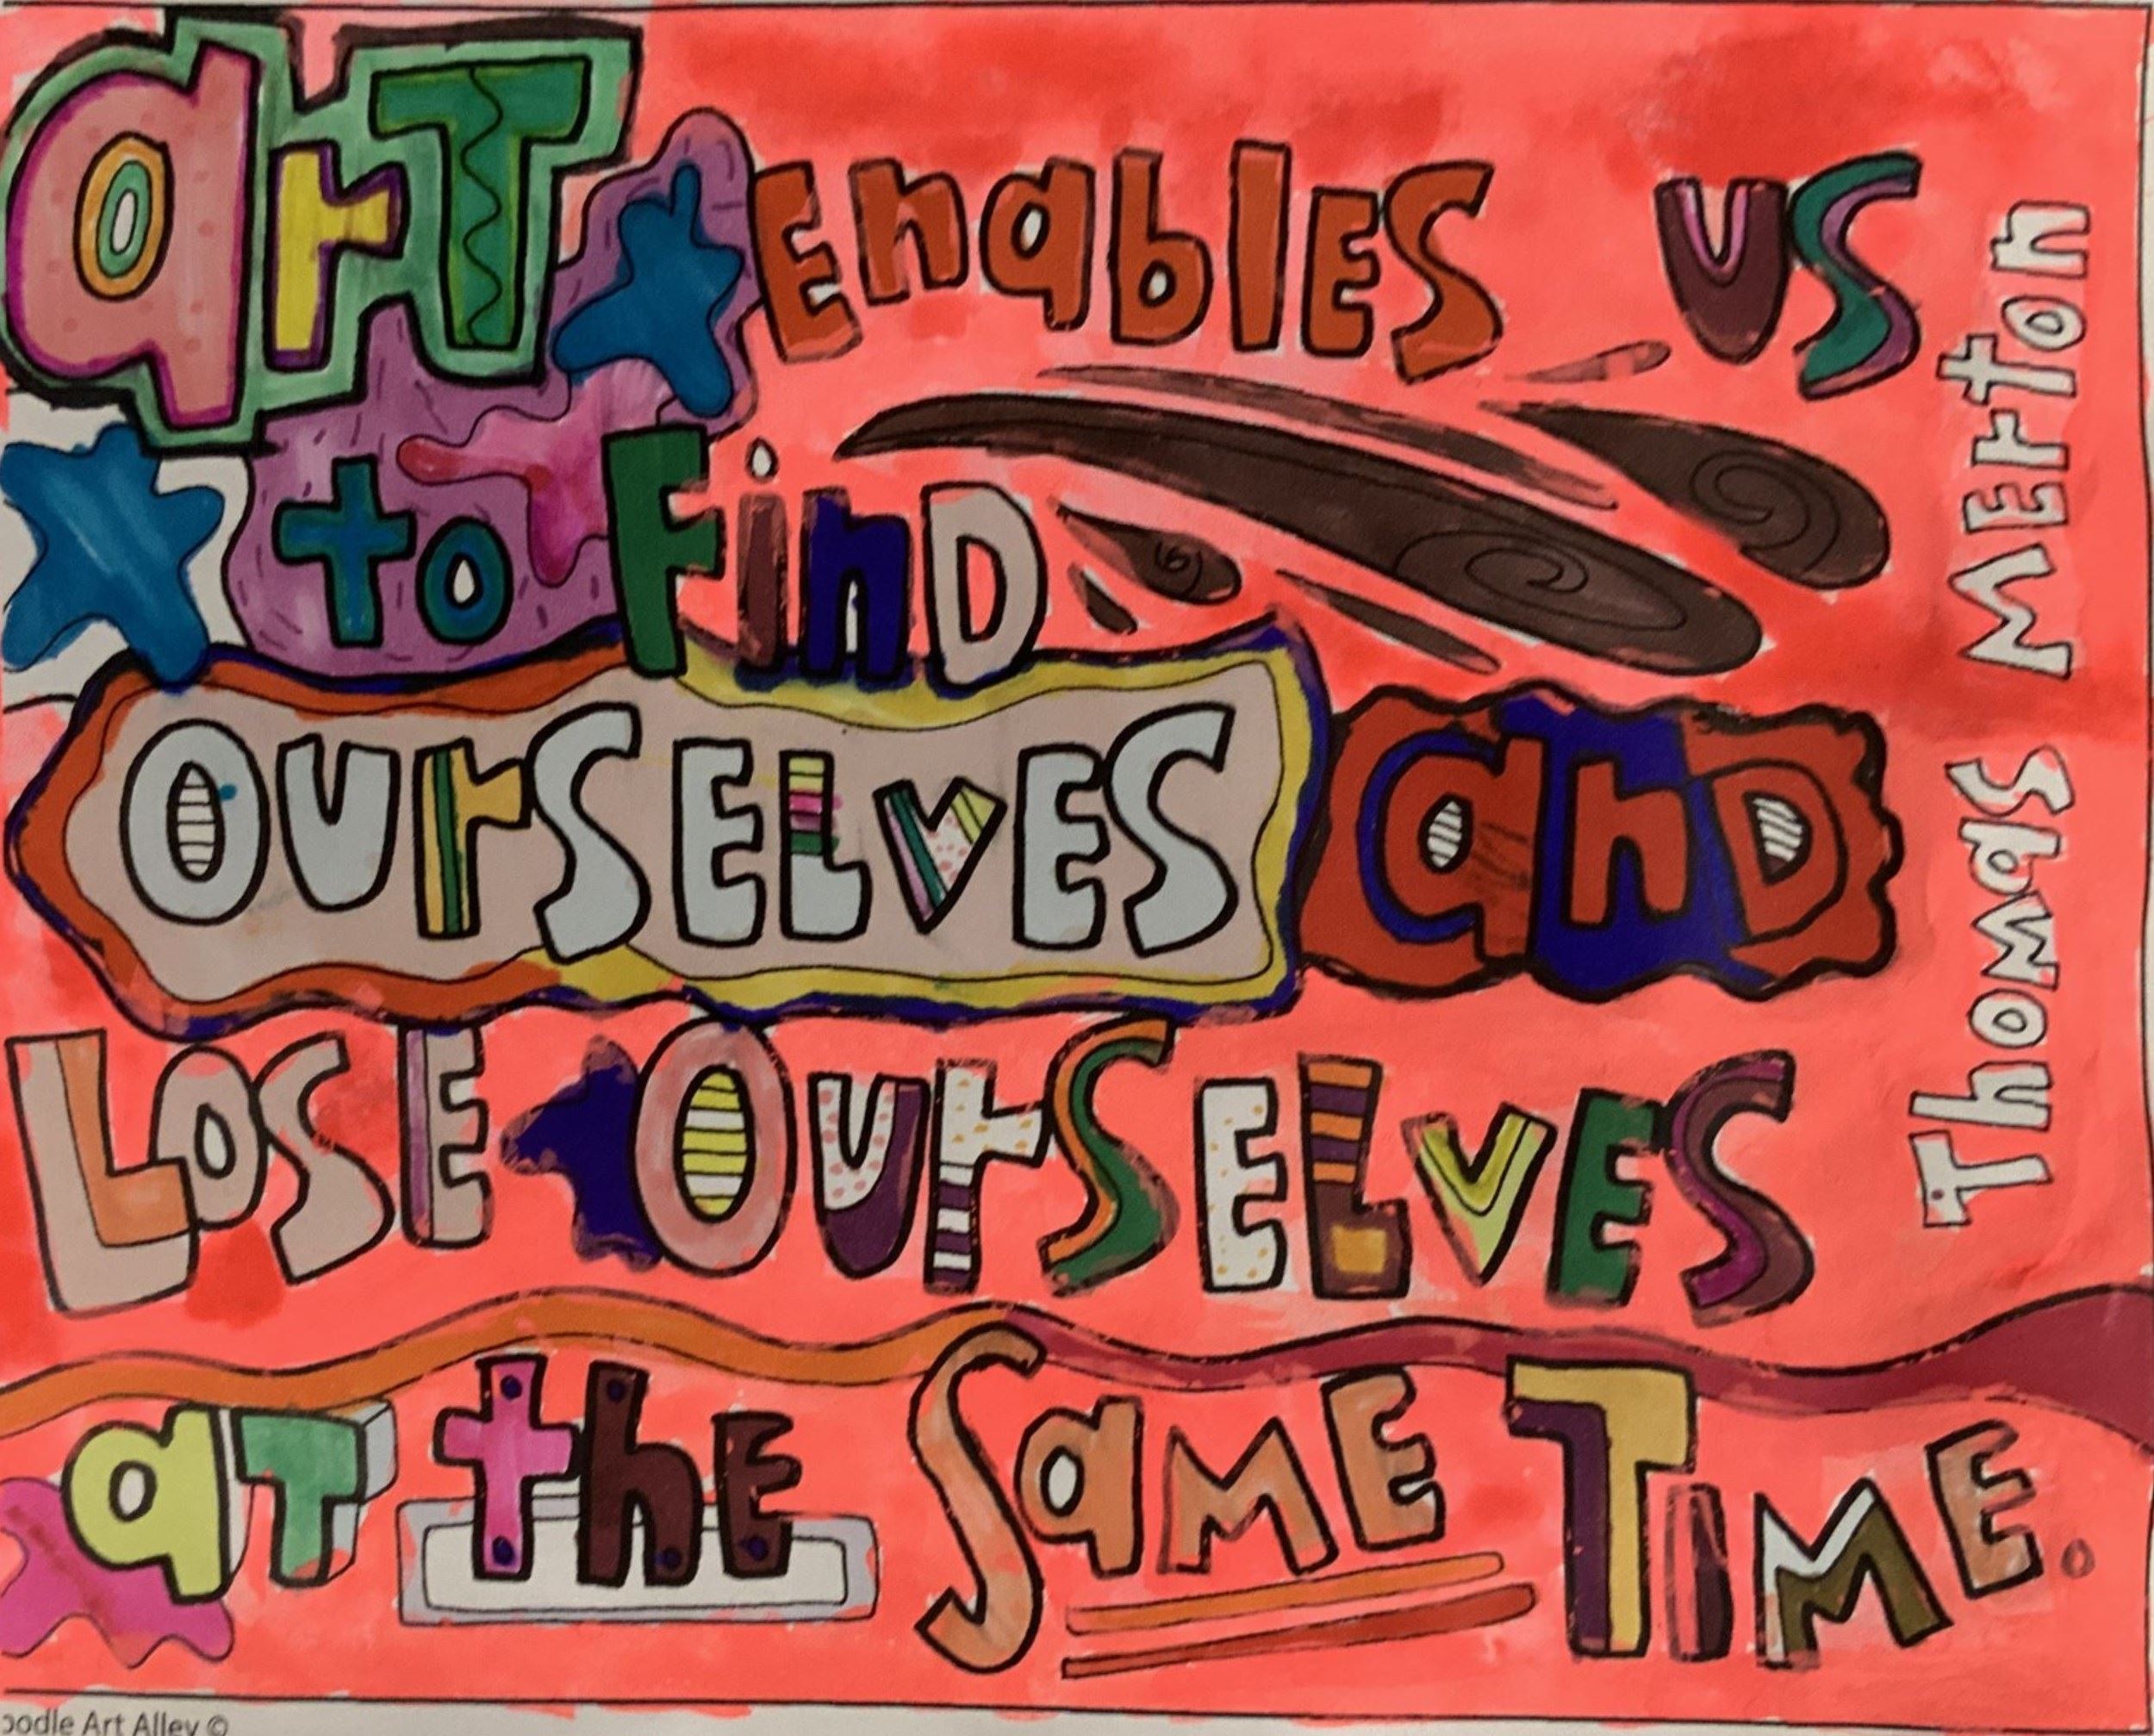 arT EnablES US
to FinD
OUrSELVES anD
LOSE OUrSELVES
aT thE SamE TIME.
Thomas MErton
oodle Art Alley ©